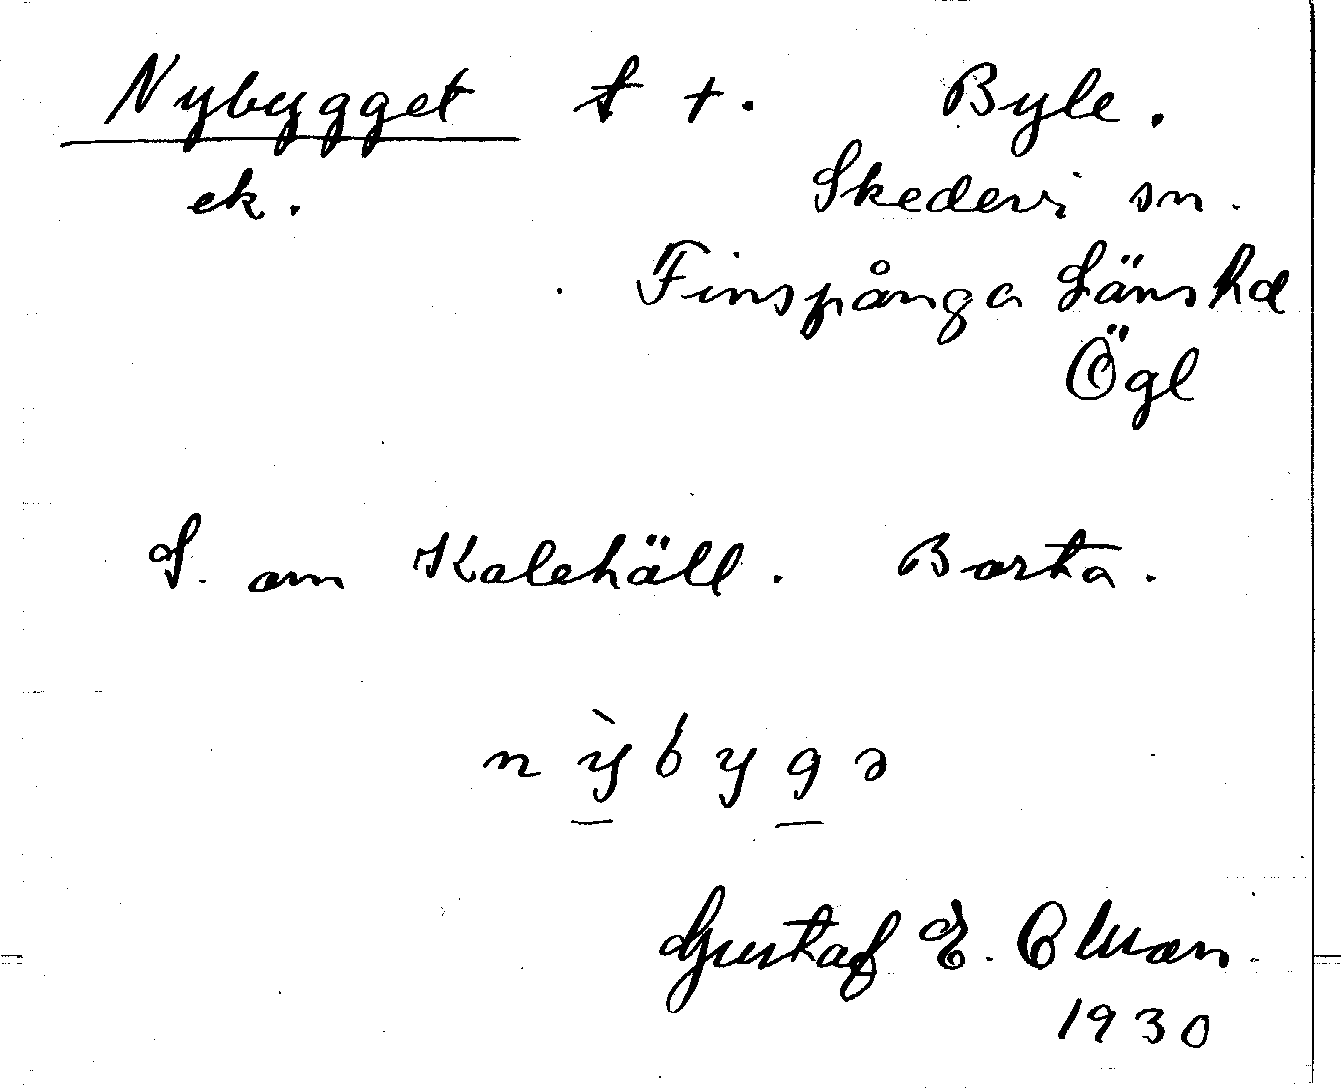 Nybygget t †. Byle.
ek. Skedevi sn.
Finspånga Läns hd
Ögl
S. om Kalehäll. Borta.
nỳbygə
Gustaf E.
1930